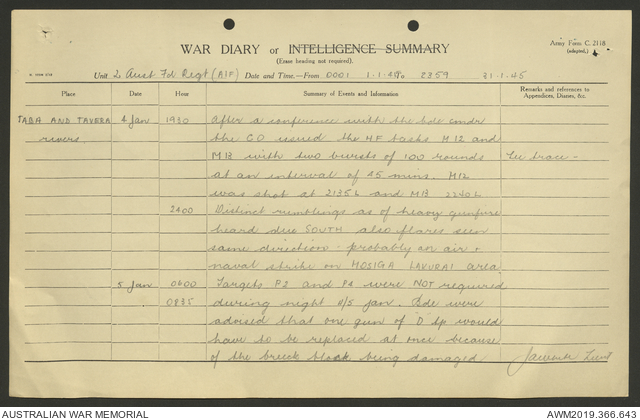 WAR DIARY or INTELLIGENCE SUMMARY
(Erase heading not required).
Army Form C. 2118
(adapted.)
Unit 2 Aust Fd Regt (AIF) Date and Time.—From 0001 1-1-45 To 2359 31-1-45
Place Date Hour Summary of Events and Information Remarks and references to Appendices, Diaries, &c.
TABA AND TAVERA 4 Jan 1930 After a conference with the bde comdr
rivers. the CO issued the HF tasks M12 and
M13 with two bursts of 100 rounds See trace -
at an interval of 45 mins. M12
was shot at 2135L and M13 2240L
2400 Distinct rumblings as of heavy gunfire
heard due SOUTH also flares seen
same direction - probably an air +
naval strike on MOSIGA LAVURAI area
5 Jan 0600 Targets P2 and P4 were NOT required
0835 during night 4/5 Jan. Bde were
advised that one gun of 'D' Tp would
have to be replaced at once because
of the breech block being damaged Lieut
AUSTRALIAN WAR MEMORIAL AWM2019.366.643